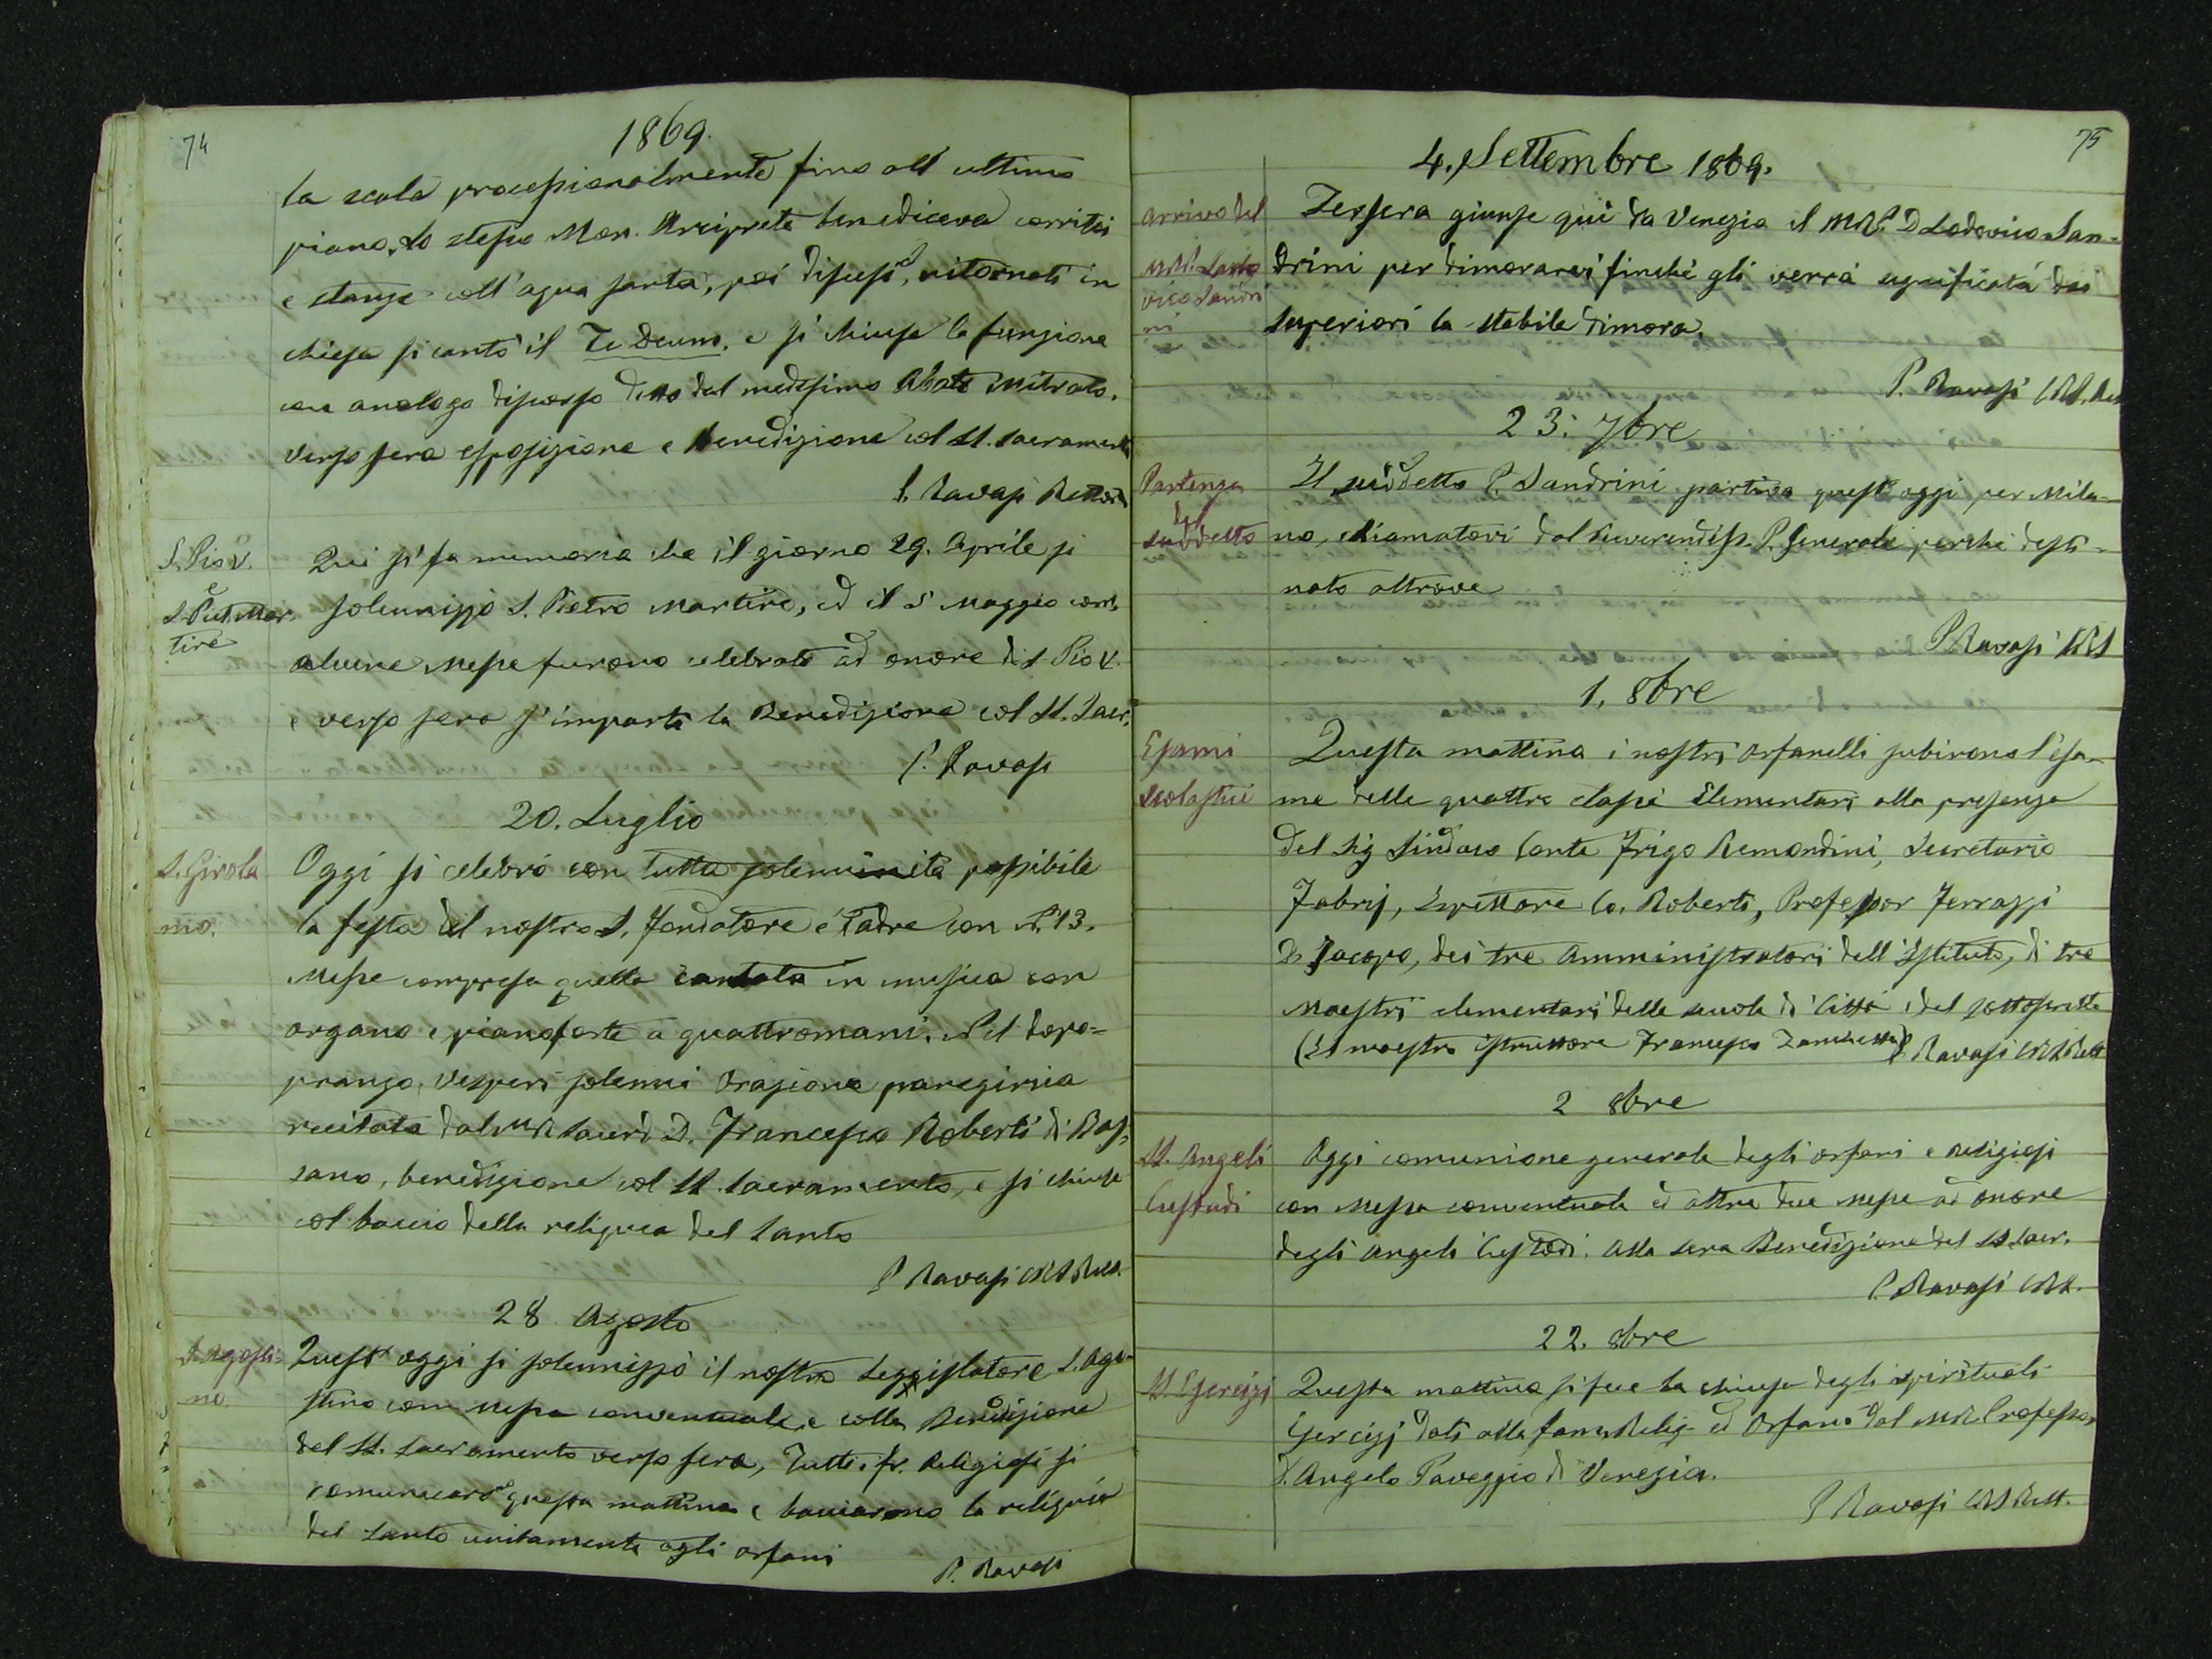 74
1869.
la scala processionalmente fino all'ultimo
piano. Lo stesso Mon. Arciprete benediceva corritoi
e stanze coll'aqua santa, poi discesi, ritornati in
chiesa si cantò il Te Deum, e si chiuse la funzione
con analogo discorso detto dal medesimo Abate Mitrato.
Verso sera esposizione e benedizione col SS. Sacramento
P. Ravasi Rettore
S. Pio V.
e
S. Piet. Mar-
tire
Qui si fa memoria che il giorno 29. Aprile si
solennizzò S. Pietro Martire, ed il 5 Maggio con
alcune Messe furono celebrate ad onore di S. Pio V.
e verso sera s'impartì la Benedizione col SS. Sacr.
P. Ravasi
20. Luglio
S. Girola
mo.
Oggi si celebrò con tutta solennità possibile
la festa del nostro S. Fondatore e Padre con N. 13.
Messe compresa quella cantata in musica con
organo e pianoforte a quattromani. Nel dopo=
pranzo, Vesperi solenni Orazione panegirica
recitata dal MR Sacerd. D. Francesco Roberti di Bas-
sano, benedizione col SS. Sacramento, e si chiuse
col baccio della reliquia del Santo
P. Ravasi CRS Rett.
28 Agosto
S. Agosti=
no.
Quest'oggi si solennizzò il nostro Leggislatore S. Ago-
stino con Messa conventuale e colla Benedizione
del SS. Sacramento verso sera, Tutti i fr. Religiosi si
comunicaro questa mattina e bacciarono la reliquia
del Santo unitamente agli orfani
P. Ravasi
75
4. Settembre 1869.
Arrivo del
M.R.P. Lodo
vico Sandri
ni
Jersera giunse quì da Venezia il MRP. D Lodovico San-
drini per dimorarvi finchè gli verrà significata dai
Superiori la stabile dimora.
P. Ravasi CRS. Ret
23. 7bre
Partenza
del
suddetto
Il suddetto P. Sandrini partiva quest'oggi per Mila-
no, chiamatovi dal Reverendiss. P. Generale perchè desti-
nato altrove
P. Ravasi CRS
1. 8bre
Esami
scolastici
Questa mattina i nostri orfanelli subirono l'esa-
me delle quattro classi Elementari alla presenza
del Sig Sindaco Conte Frigo Remondini, Secretario
Fabris, Ispettore Co. Roberti, Professor Ferrazzi
D. Jacopo, dei tre Amministratori dell'Istituto, di tre
Maestri elementari delle scuole di Città e del sottoscritto
(Il maestro istruttore Francesco Zanchetta) P. Ravasi CRS Rett
2 8bre
SS. Angeli
Custodi
Oggi comunione generale degli orfani e religiosi
con Messa conventuale ed altre due messe ad onore
degli Angeli Custodi. Alla sera Benedizione del SS. Sacr.
P. Ravasi CRS.
22. 8bre
SS. Esercizj
Questa mattina si fece la chiusa degli spirituali
Esercizj dati alla fam. Relig. ed Orfani dal MR Professor
D. Angelo Paveggio di Venezia.
P Ravasi CRS Rett.